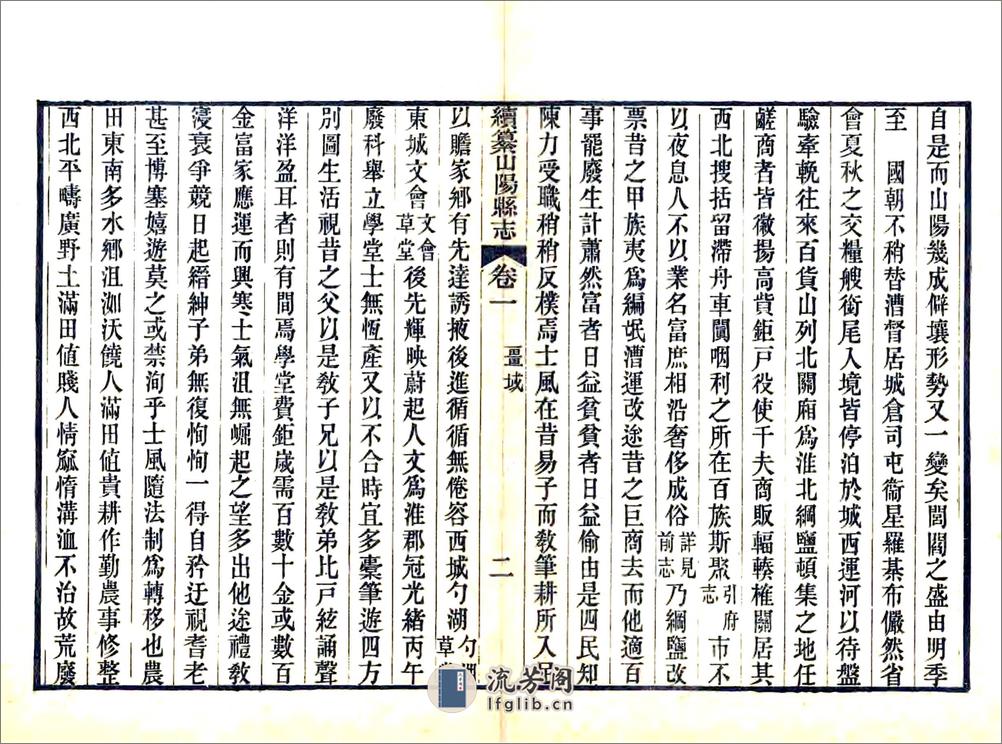 自是而山陽幾成僻壤形勢又一變矣閭閻之盛由明季
至　國朝不稍替漕督居城倉司屯衞星羅棊布儼然省
會夏秋之交糧艘銜尾入境皆停泊於城西運河以待盤
驗牽輓往來百貨山列北關廂爲淮北綱鹽頓集之地任
鹺商者皆徽揚高貲鉅戸役使千夫商販輻輳榷關居其
西北搜括留滯舟車闐咽利之所在百族斯聚引府志市不
以夜息人不以業名富庶相沿奢侈成俗詳見前志乃綱鹽改
票昔之甲族夷爲編氓漕運改途昔之巨商去而他適百
事罷廢生計蕭然富者日益貧貧者日益偷由是四民知
陳力受職稍稍反樸焉士風在昔易子而敎筆耕所入足
續纂山陽縣志　卷一　疆域　二
以贍家鄉有先達誘掖後進循循無倦容西城勺湖勺湖草堂
東城文會文會草堂後先輝映蔚起人文爲淮郡冠光緒丙午
廢科舉立學堂士無恆產又以不合時宜多橐筆遊四方
別圖生活視昔之父以是敎子兄以是敎弟比戸絃誦聲
洋洋盈耳者則有間焉學堂費鉅歲需百數十金或數百
金富家應運而興寒士氣沮無崛起之望多出他途禮敎
寖衰爭競日起縉紳子弟無復恂恂一得自矜迂視耆老
甚至博塞嬉遊莫之或禁洵乎士風隨法制爲轉移也農
田東南多水鄉沮洳沃饒人滿田値貴耕作勤農事修整
西北平疇廣野土滿田値賤人情窳惰溝洫不治故荒廢
流芳阁
lfglib.cn